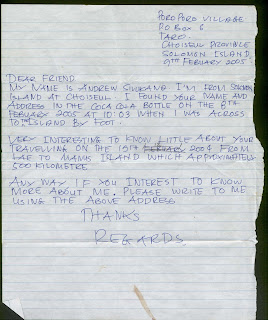 PORO PORO VILLAGE
PO BOX 6
TARO.
CHOISEUL PROVINCE
SOLOMON ISLAND.
9TH FEBUARY 2005.
DEAR FRIEND
MY NAME IS ANDREW I'M FROM SOLOMON
ISLAND AT CHOISEUL. I FOUND YOUR NAME AND
ADDRESS IN THE COCA COLA BOTTLE ON THE 8TH
FEBUARY 2005 AT 10:03 WHEN I WAS ACROSS
TO ISLAND BY FOOT.
VERY INTERESTING TO KNOW LITTLE ABOUT YOUR
TRAVELLING ON THE 2004 FROM
LAE TO MANUS ISLAND WHICH APPROXIMATELY
500 KILOMETRE.
ANY WAY IF YOU INTEREST TO KNOW
MORE ABOUT ME. PLEASE WRITE TO ME
USING THE ABOVE ADDRESS
THANKS
REGARDS